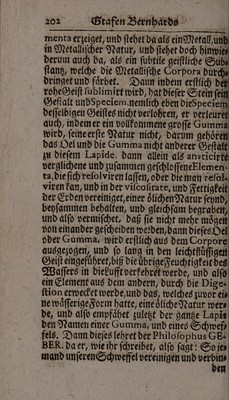 202 Grafen Bernhards
menta erzeiget, und stehet da als ein Metall, und
in Metallischer Natur, und stehet doch hinwie-
derum auch da, als ein subtile geistliche Sub-
stantz, welche die Metallische Corpora durch-
dringet und färbet. Dann indem erstlich der
rohe Geist sublimirt wird, hat dieser Stein sein
Gestalt und Speciem nemlich eben die Speciem
desselbigen Geistes nicht verlohren, er verleuret
auch, indem er ein vollkommene grosse Gumma
wird, seine erste Natur nicht, darum gehören
das Oel und die Gumma nicht anderer Gestalt
zu diesem Lapide, dann allein als
verglichene und zusammen geschlossene Elemen-
ta, die sich resolviren lassen, oder die man resol-
viren kan, und in der viscositate, und Fettigkeit
der Erden vereiniget, einer ölichen Natur seynd,
beysammen behalten, und gleichsam begraben,
und also vermischet, daß sie nicht mehr mögen
von einander gescheiden werden, dann dieses Oel
oder Gumma, wird erstlich aus dem Corpore
ausgezogen, und so lang in den leichtflüssigen
Geist eingeführet, biß die übrige Feuchtigkeit des
Wassers in die Lufft verkehret werde, und also
ein Element aus dem andern, durch die Dige-
stion erwecket werde, und das, welches zuvor ei-
ne wässerige Form hatte, eine öliche Natur wer-
de, und also empfähet zuletzt der gantze Lapis
den Namen einer Gumma, und eines Schwef-
fels. Dann dieses lehret der Philosophus GE-
BER, da er, wie ihr schreibet, also sagt: So je-
mand unseren Schweffel vereinigen und verbin-
den